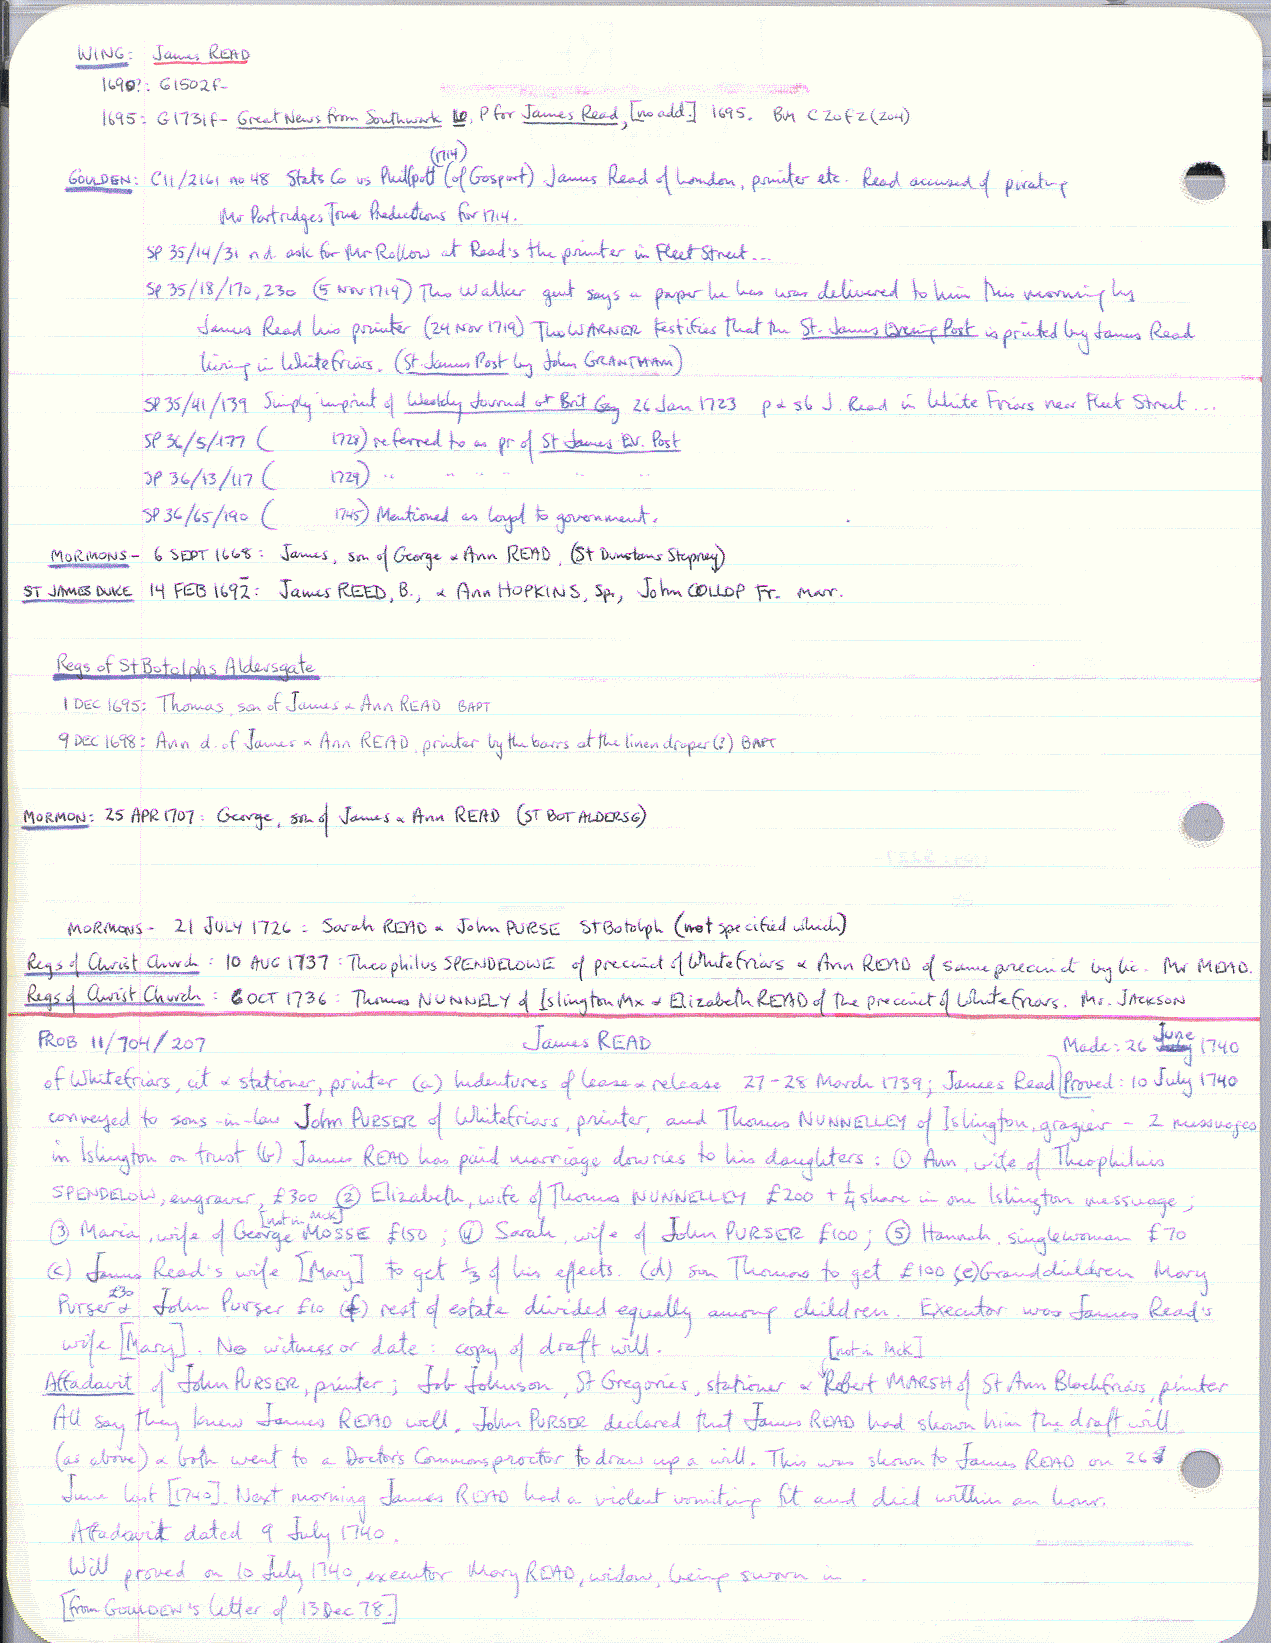 WING: James READ
1690?: G1502F-
1695: G1731F- Great News from Southwark 1o, P for James Read, [no add.] 1695. BM C 20 f 2 (204)
(1714)
GOULDEN: C11/2161 no 48 Stats Co vs Phillpott (of Gosport) James Read of London, printer etc. Read accused of pirating
Mr Partridges True Predictions for 1714.
SP 35/14/31 n d. ask for Mr Rollow at Read's the printer in Fleet Street...
SP 35/18/170, 230 (5 Nov 1719) Tho Walker gent says a paper he has was delivered to him this morning by
James Read his printer (24 Nov 1719) Tho WARNER testifies that the St. James Evening Post is printed by James Read
living in Whitefriars. (St. James Post by John GRANTHAM)
SP 35/41/139 Simply imprint of Weekly Journal or Brit Gaz 26 Jan 1723 p & s b J. Read in White Friars near Fleet Street...
SP 36/5/177 ( 1728) referred to as pr of St James Ev. Post
SP 36/13/117 ( 1729) " " " " "
SP 36/65/190 ( 1745) Mentioned as loyal to government.
MORMONS- 6 SEPT 1668: James, son of George & Ann READ, (St Dunstans Stepney)
ST JAMES DUKE 14 FEB 1692: James REED, B., & Ann HOPKINS, Sp., John COLLOP Fr. marr.
Regs of St Botolphs Aldersgate
1 DEC 1695: Thomas, son of James & Ann READ BAPT
9 DEC 1698: Ann d. of James & Ann READ, printer by the barrs at the linen draper (?) BAPT
MORMON: 25 APR 1707: George, son of James & Ann READ (ST BOT ALDERSG)
MORMONS- 21 JULY 1726: Sarah READ & John PURSE St Botolph (not specified which)
Regs of Christ Church: 10 AUG 1737: Theophilus SPENDELOWE of precinct of Whitefriars & Ann READ of same precinct by lic. Mr MEAD.
Regs of Christ Church: 6 OCT 1736: Thomas NUNNELY of Islington Mx & Elizabeth READ of the precinct of Whitefriars. Mr. JACKSON
PROB 11/704/207 James READ Made: 26 June 1740
of Whitefriars, cit & stationer, printer (a) Indentures of lease & release 27-28 March 1739; James Read Proved: 10 July 1740
conveyed to sons-in-law John PURSER of Whitefriars, printer, and Thomas NUNNELLEY of Islington, grazier - 2 messuages
in Islington on trust (b) James READ has paid marriage dowries to his daughters: (1) Ann, wife of Theophilus
SPENDELOW, engraver, £300 (2) Elizabeth, wife of Thomas NUNNELLEY £200 + 1/4 share in one Islington messuage;
[not in McK]
(3) Maria, wife of George MOSSE £150; (4) Sarah, wife of John PURSER £100; (5) Hannah, singlewoman £70
(c) James Read's wife [Mary] to get 1/3 of his effects. (d) son Thomas to get £100 (e) Grandchildren Mary
£30
Purser & John Purser £10 (f) rest of estate divided equally among children. Executor was James Read's
wife [Mary]. No witness or date: copy of draft will.
[not in McK]
Affadavit of John PURSER, printer; Job Johnson, St Gregories, stationer & Robert MARSH of St Ann Blackfriars, printer
All say they knew James READ well. John PURSER declared that James READ had shown him the draft will
(as above) & both went to a Doctor's Commons proctor to draw up a will. This was shown to James READ on 26
June last [1740]. Next morning James READ had a violent vomiting fit and died within an hour.
Affadavit dated 9 July 1740.
Will proved on 10 July 1740, executor Mary READ, widow, being sworn in.
[from GOULDEN's letter of 13 Dec 78.]